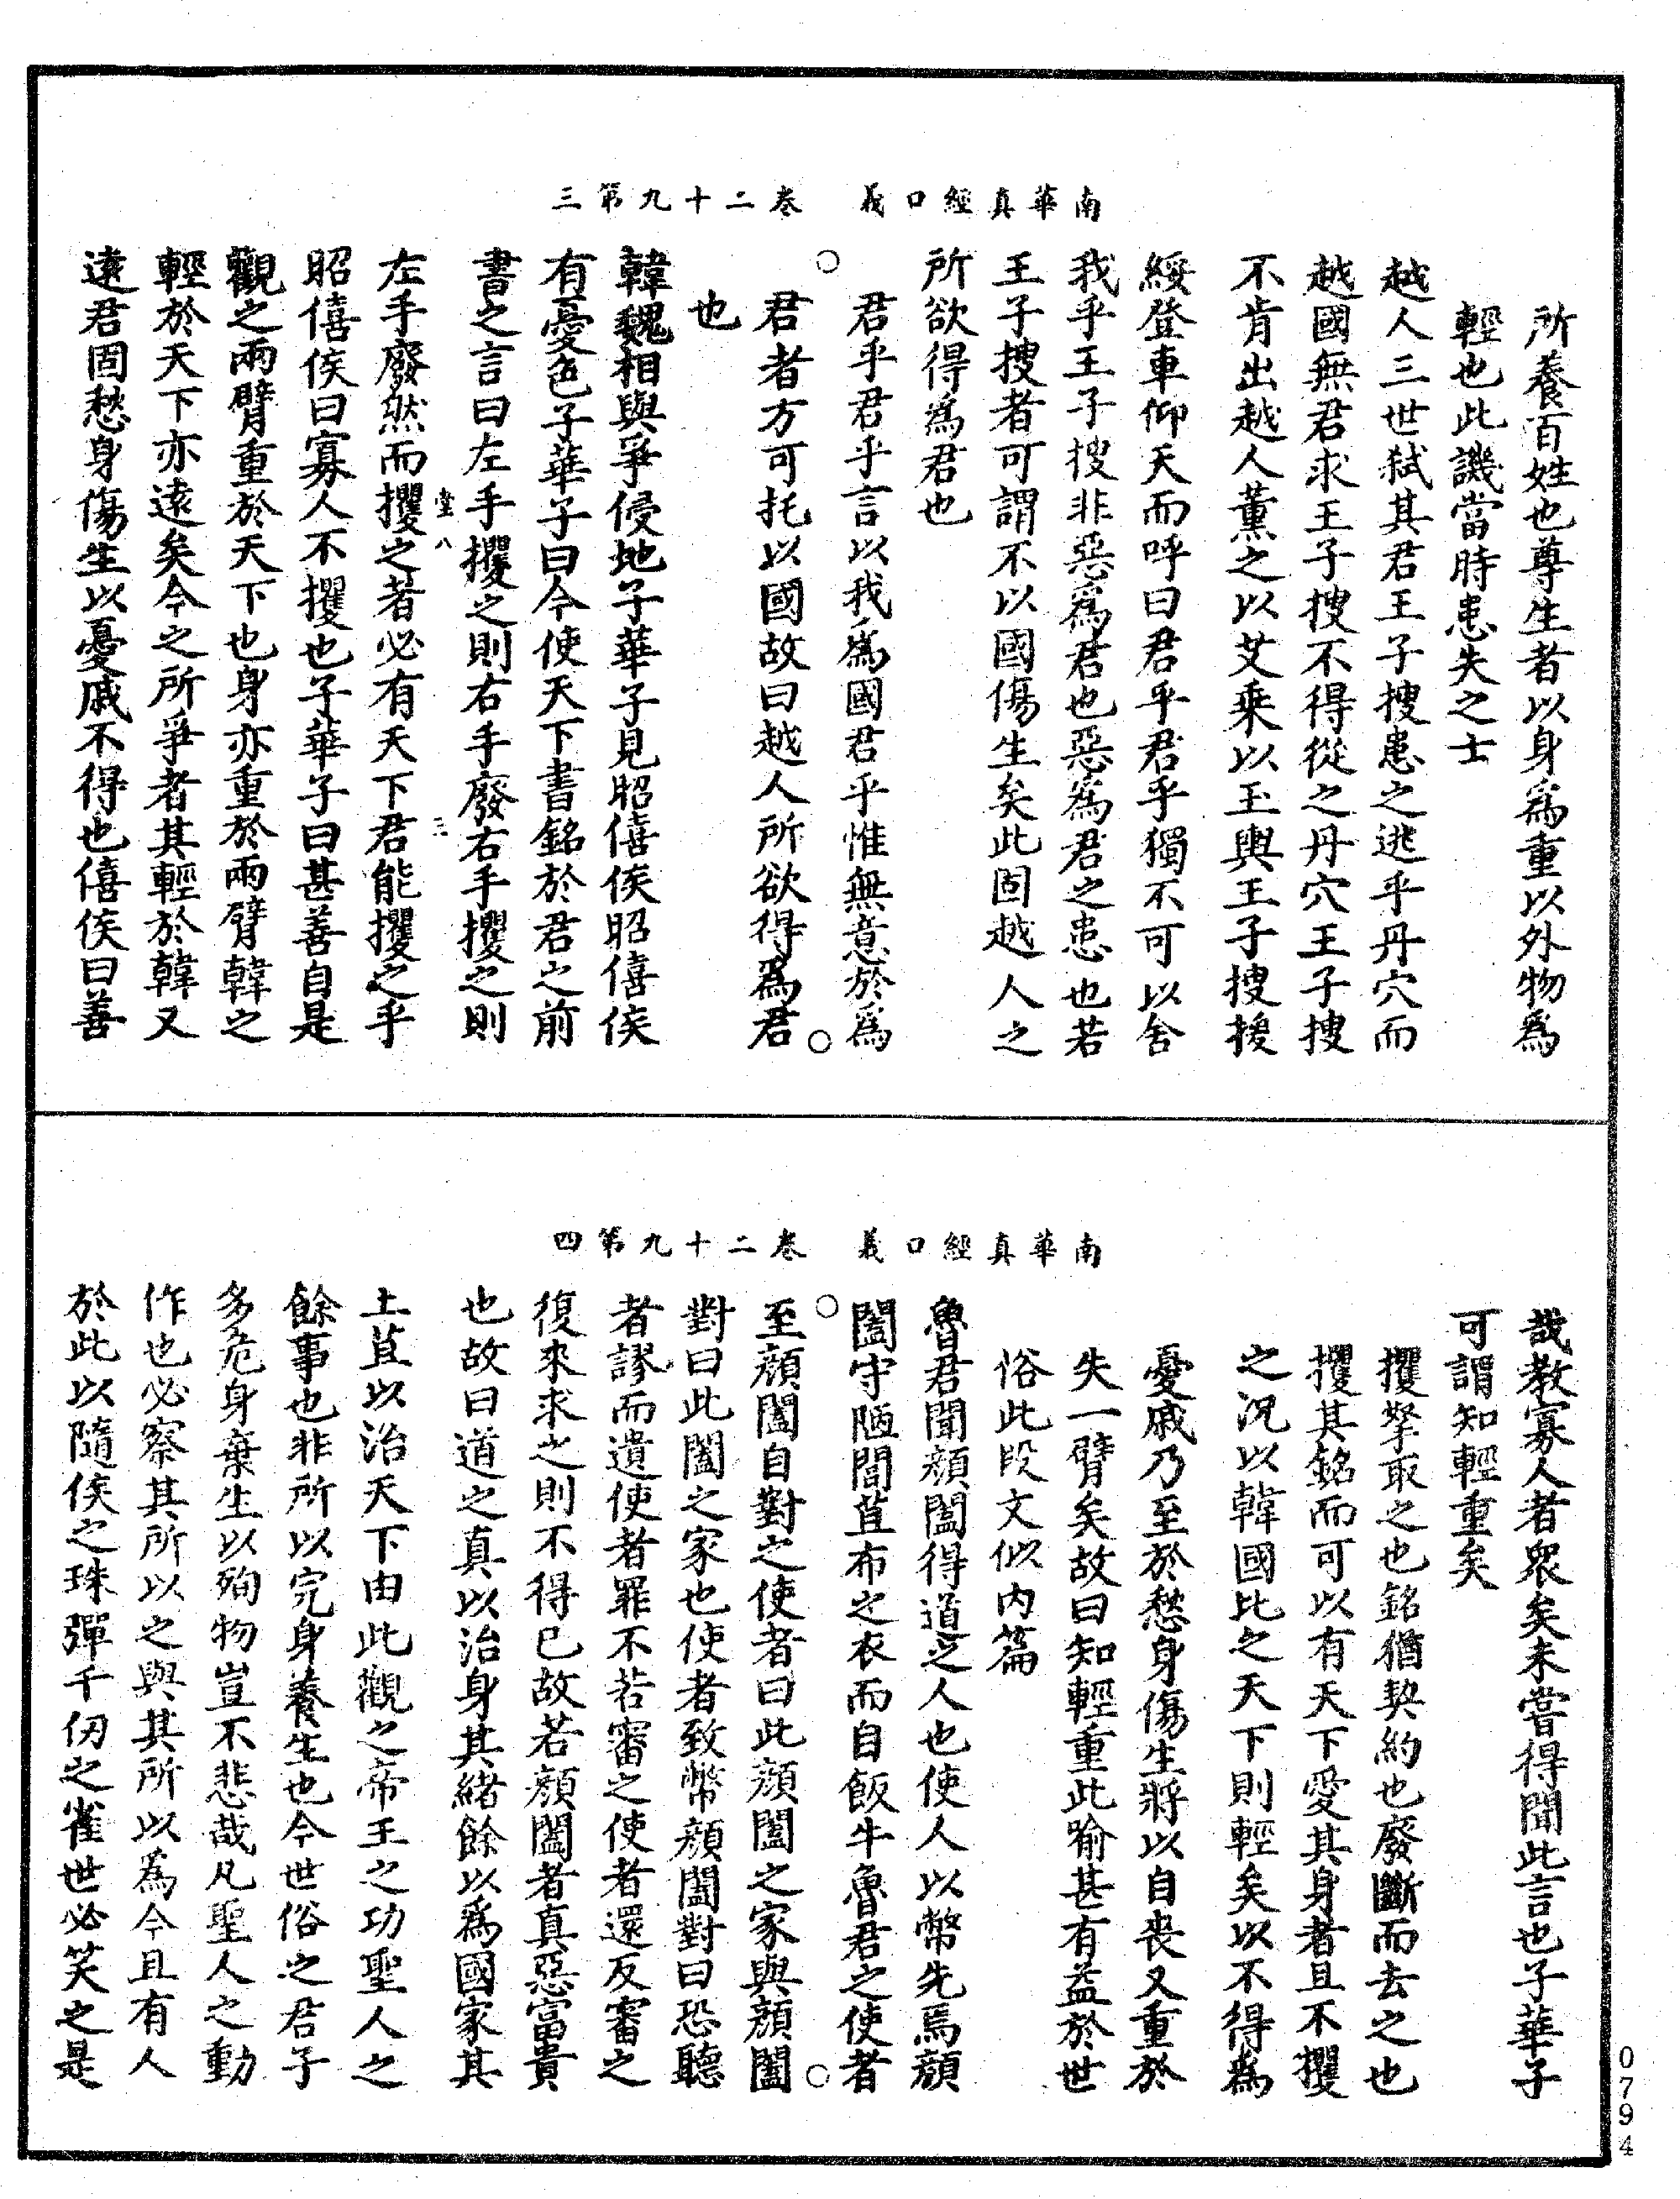 南華真經口義 卷二十九第三
所養百姓也尊生者以身爲重以外物爲
輕也此譏當時患失之士
越人三世弑其君王子搜患之逃乎丹穴而
越國無君求王子搜不得從之丹穴王子搜
不肯出越人薰之以艾乘以玉輿王子搜援
綏登車仰天而呼曰君乎君乎獨不可以舍
我乎王子搜非惡爲君也惡爲君之患也若
王子搜者可謂不以國傷生矣此固越人之
所欲得爲君也
君乎君乎言以我爲國君乎惟無意於爲
君者方可托以國故曰越人所欲得爲君
也
韓魏相與爭侵地子華子見昭僖侯昭僖侯
有憂色子華子曰今使天下書銘於君之前
書之言曰左手攫之則右手廢右手攫之則
堂八 三
左手廢然而攫之者必有天下君能攫之乎
昭僖侯曰寡人不攫也子華子曰甚善自是
觀之兩臂重於天下也身亦重於兩臂韓之
輕於天下亦遠矣今之所爭者其輕於韓又
遠君固愁身傷生以憂戚不得也僖侯曰善
南華真經口義 卷二十九第四
哉教寡人者衆矣未嘗得聞此言也子華子
可謂知輕重矣
攫拏取之也銘猶契約也廢斷而去之也
攫其銘而可以有天下愛其身者且不攫
之况以韓國比之天下則輕矣以不得爲
憂戚乃至於愁身傷生將以自喪又重於
失一臂矣故曰知輕重此喻甚有益於世
俗此段文似內篇
魯君聞顔闔得道之人也使人以幣先焉顔
闔守陋閭苴布之衣而自飯牛魯君之使者
至顔闔自對之使者曰此顔闔之家與顔闔
對曰此闔之家也使者致幣顔闔對曰恐聽
者謬而遺使者罪不若審之使者還反審之
復來求之則不得已故若顔闔者真惡富貴
也故曰道之真以治身其緒餘以爲國家其
土苴以治天下由此觀之帝王之功聖人之
餘事也非所以完身養生也今世俗之君子
多危身棄生以殉物豈不悲哉凡聖人之動
作也必察其所以之與其所以爲今且有人
於此以隨侯之珠彈千仞之雀世必笑之是
0794